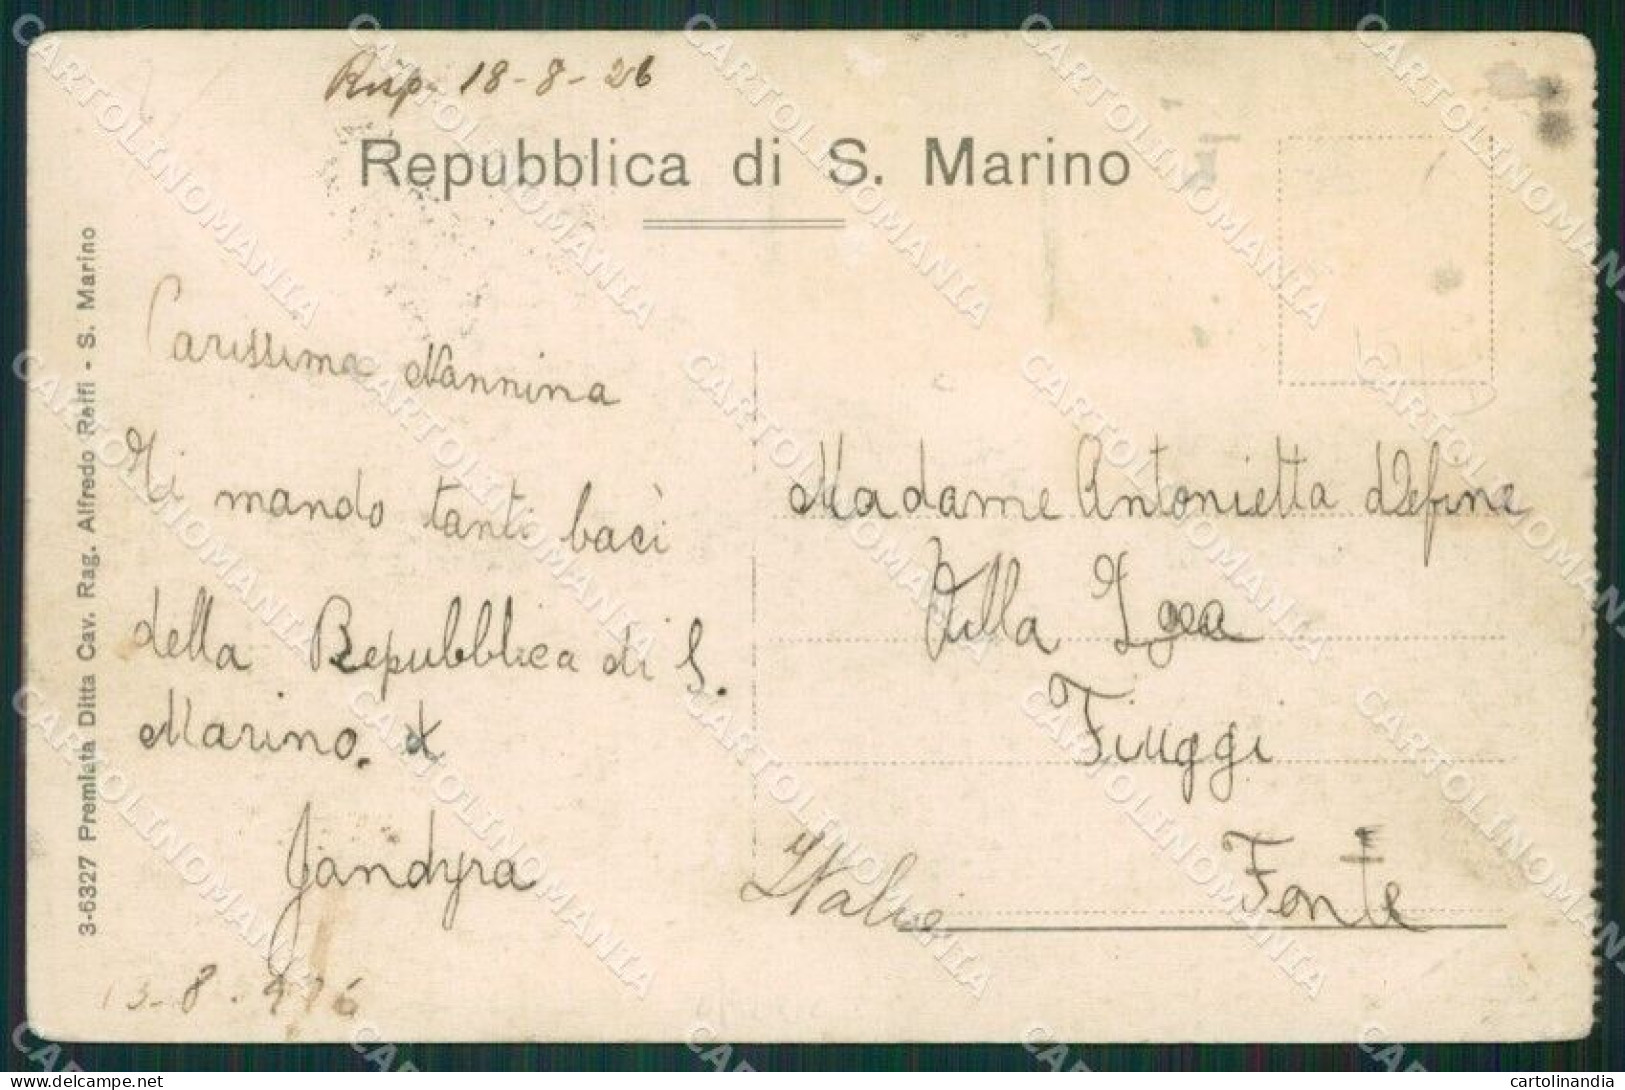 Risp. 18-8-26
Repubblica di S. Marino
3-6327 Premiata Ditta Cav. Rag. Alfredo Reffi - S. Marino
Carissima Nannina
Ti mando tanti baci
della Repubblica di S.
Marino.
Jandyra
13-8-926
Madame Antonietta Define
Villa Igea
Fiuggi
Fonte
Italie
CARTOLINOMANIA
delcampe.net
cartolinandia